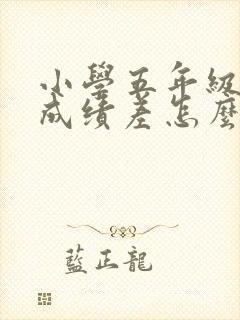 小學五年級
成绩差怎麼
藍正龍